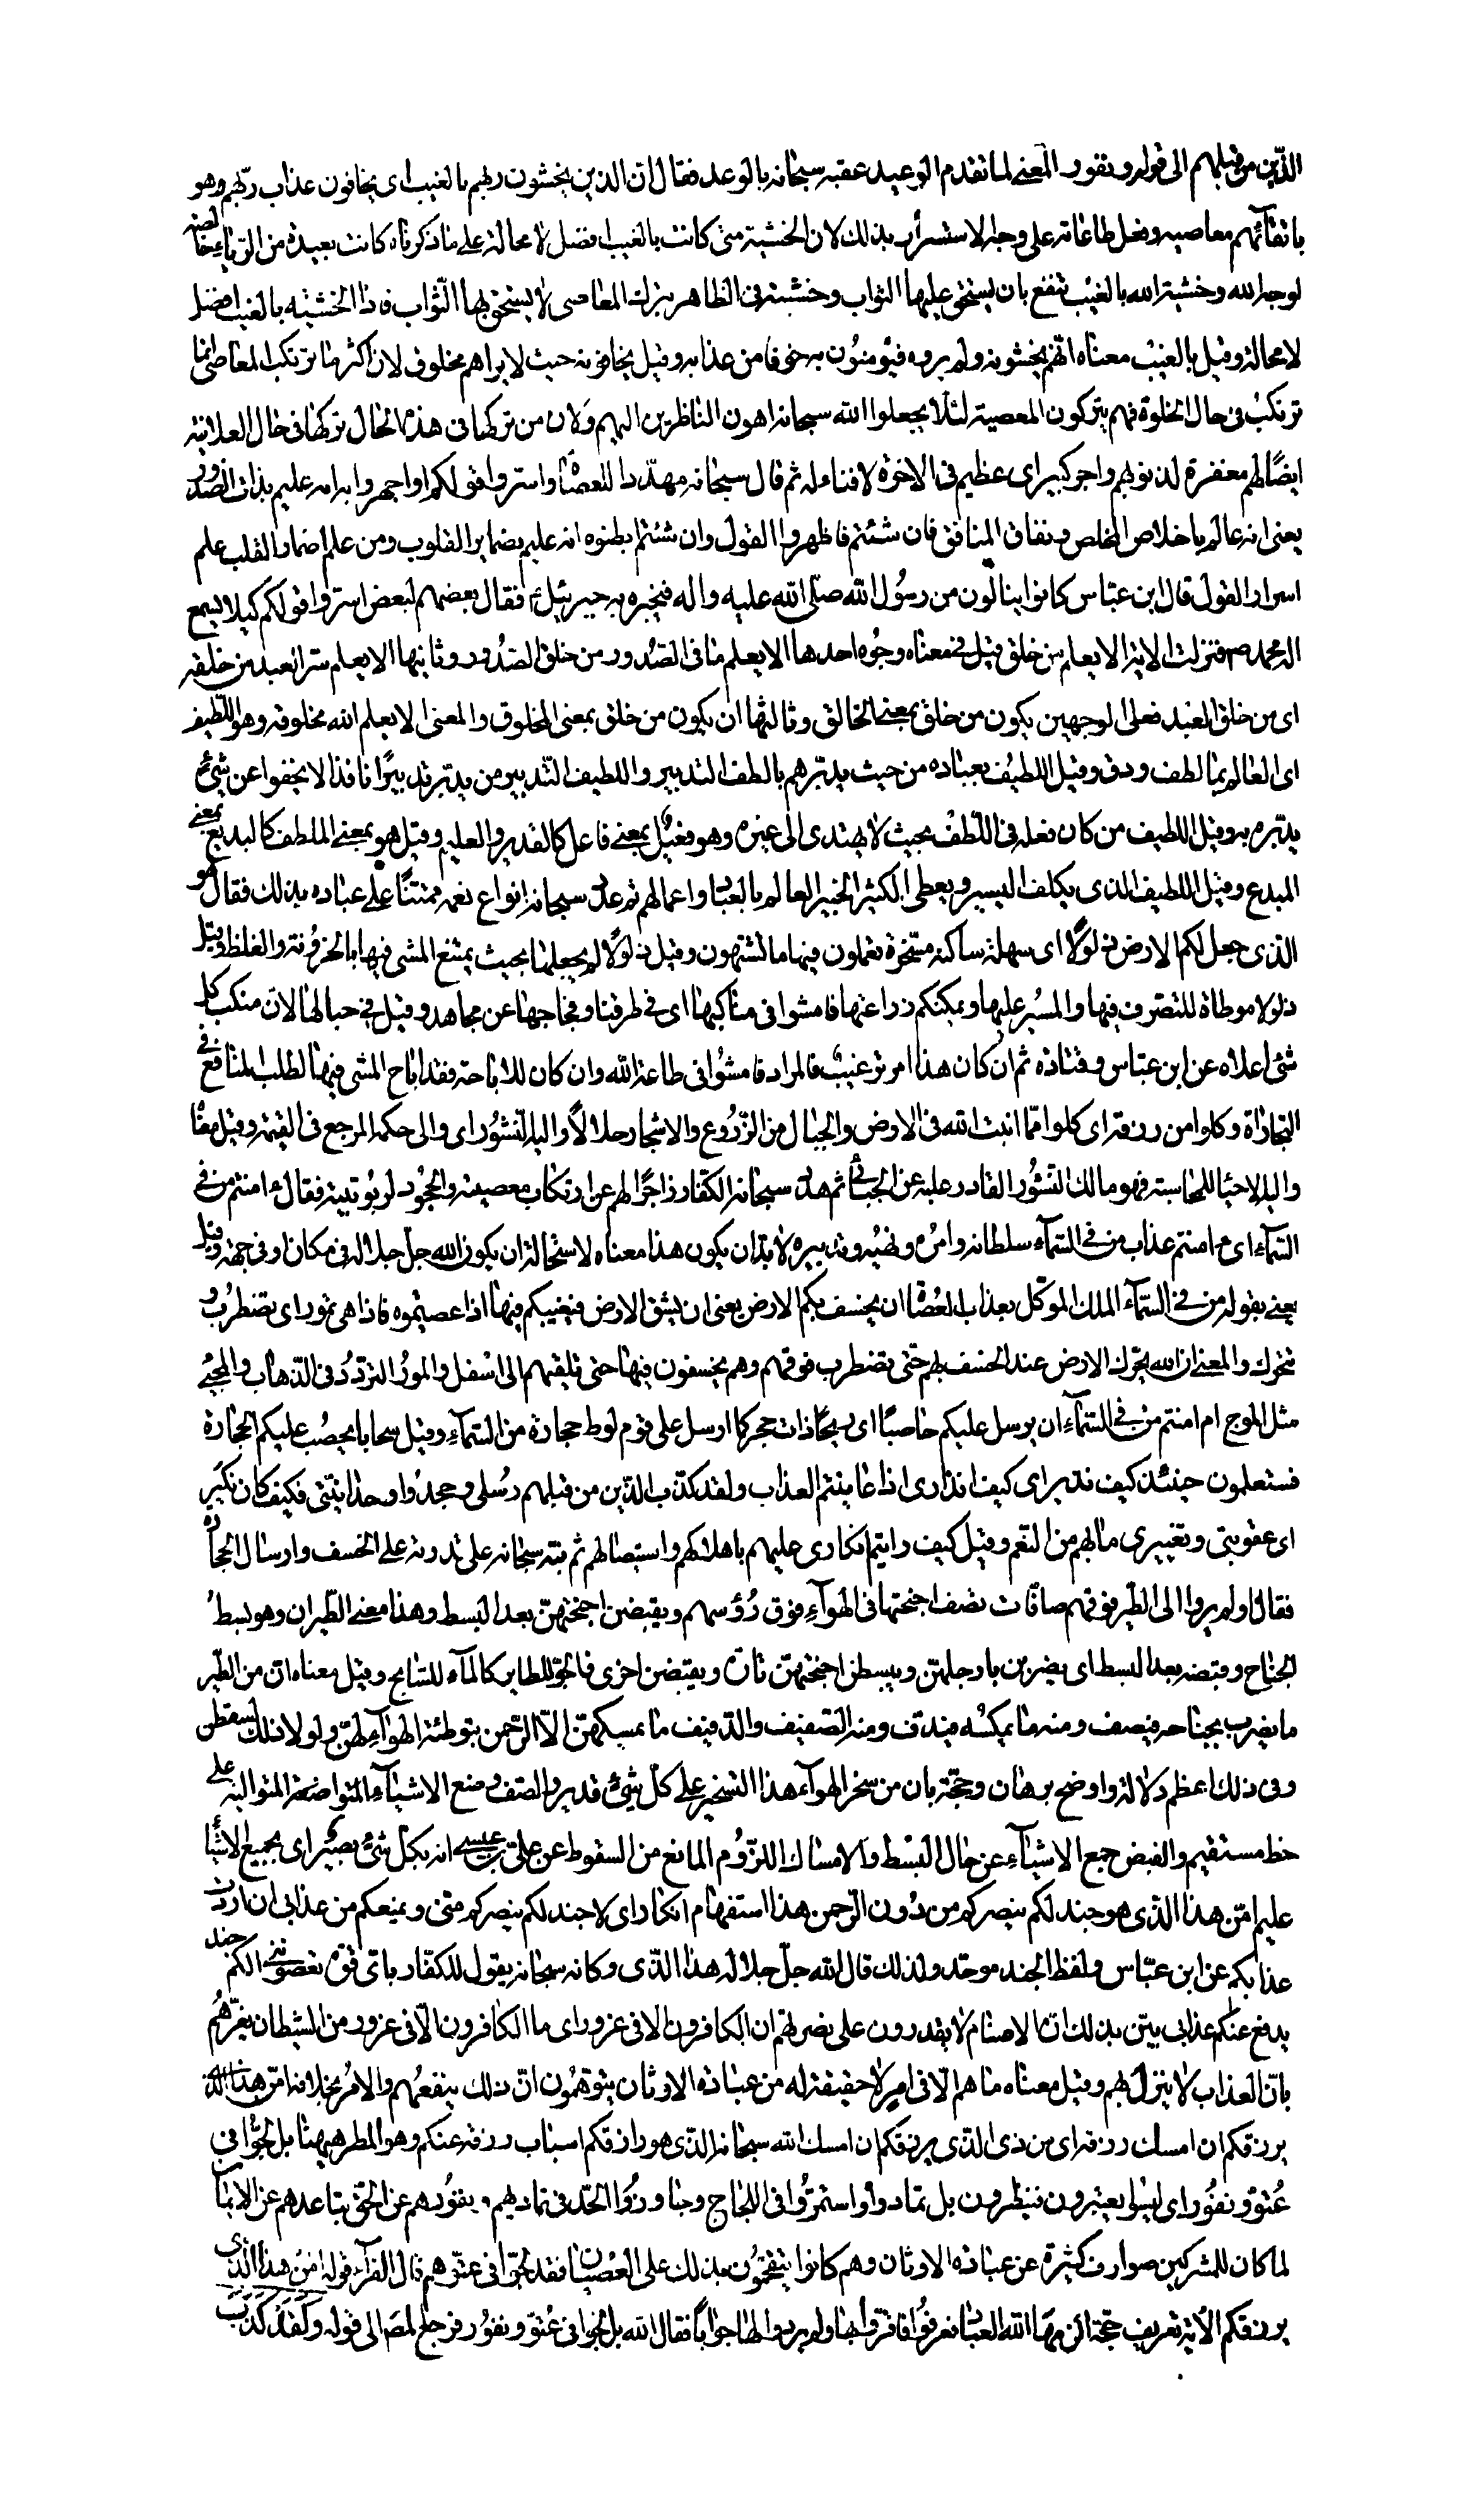 الذين من قبلهم الى قوله ونفور المعنى لما تقدم الوعيد عقبه سبحانه بالوعد فقال ان الذين يخشون ربهم بالغيب اى يخافون عذاب ربهم وهو
باتقائهم معاصيه وفعل طاعاته على وجه الاستسرار بذلك لان الخشية متى كانت بالغيب افضل لا محالة على ما ذكرناه كانت بعيدة من الرياء خالصة
لوجه الله وخشية الله بالغيب تنفع بان يستحق عليها الثواب وخشيته فى الظاهر بترك المعاصى لا يستحق بها الثواب فاذا الخشية بالغيب افضل
لا محالة وقيل بالغيب معناه انهم يخشونه ولم يروه فيؤمنون به خوفا من عذابه وقيل يخافونه حيث لا يراهم مخلوق لان اكثر ما ترتكب المعاصى انما
ترتكب فى حال الخلوة فهم يتركون المعصية لئلا يجعلوا الله سبحانه اهون الناظرين اليهم ولان من تركها فى هذه الحال تركها فى حال العلانية
ايضًا لهم مغفرة لذنوبهم واجر كبير اى عظيم فى الاخرة لا فناء له ثم قال سبحانه مهدّدا للعصاة واسروا قولكم او اجهروا به انه عليم بذات الصدور
يعنى انه عالم باخلاص المخلص ونفاق المنافق فان شئتم فاظهروا القول وان شئتم ابطنوه انه عليم بضماير القلوب ومن علم اضمار القلب علم
اسرار القول قال ابن عباس كانوا ينالون من رسول الله صلى الله عليه واله فيخبره به جبرئيل ع فقال بعضهم لبعض اسروا قولكم كيلا يسمع
اله محمد ص فنزلت الاية الا يعلم من خلق قيل فى معناه وجوه احدها الا يعلم ما فى الصدور من خلق الصدور وثانيها الا يعلم سر العبد من خلقه
اى من خلق العبد فعلى الوجهين يكون من خلق بمعنى الخالق وثالثها ان يكون من خلق بمعنى المخلوق والمعنى الا يعلم الله مخلوقه وهو اللطيف
اى العالم بما لطف ودق وقيل اللطيف بعباده من حيث يدبرهم بالطف التدبير واللطيف التدبير من يدبر تدبيرًا نافذا لا يخفوا عن شىء
يدبره به وقيل اللطيف من كان فعله فى اللطف بحيث لا يهتدى الى غيره وهو فعيل بمعنى فاعل كالقدير والعليم وقيل هو بمعنى الملطف كالبديع بمعنى
المبدع وقيل اللطيف الذى يكلف اليسير ويعطى الكثير الخبير العالم بالعباد واعمالهم ثم عدد سبحانه انواع نعمه ممتنًا على عباده بذلك فقال هو
الذى جعل لكم الارض ذلولًا اى سهلة ساكنة مسخرة تعملون فيها ما تشتهون وقيل ذلولًا لم يجعلها بحيث يمتنع المشى فيها بالحزونة والغلظ وقيل
ذلولا موطاة للتصرف فيها والمسير عليها ويمكنكم زراعتها فامشوا فى مناكبها اى فى طرقها وفجاجها عن مجاهد وقيل فى جبالها لان منكب كل
شئ اعلاه عن ابن عباس وقتادة ثم ان كان هذا امر ترغيب فالمراد فامشوا فى طاعة الله وان كان للاباحة فقد اباح المشى فيها لطلب المنافع فى
التجارة وكلوا من رزقه اى كلوا مما انبت الله فى الارض والجبال من الزروع والاشجار حلالًا واليه النشور اى والى حكمه المرجع فى القيمة وقيل معناه
واليه الاحياء للمحاسبة فهو مالك النشور القادر عليه عن الجبائى ثم هدد سبحانه الكفار زاجرًا لهم عن ارتكاب معصيته والجحود لربوبيته فقال ءامنتم من فى
السماء اى ءامنتم عذاب من فى السماء سلطانه وامره ونهيه وتدبيره لا بد ان يكون هذا معناه لاستحالة ان يكون الله جل جلاله فى مكان او فى جهة وقيل
يعنى بقوله من فى السماء الملك الموكل بعذاب العصاة ان يخسف بكم الارض يعنى ان يشق الارض فيغيبكم فيها اذا عصيتموه فاذا هى تمور اى تضطرب و
تتحرك والمعنى ان الله يحرك الارض عند الخسف بهم حتى تضطرب فوقهم وهم يخسفون فيها حتى تلقيهم الى اسفل والمور التردد فى الذهاب والمجئ
مثل الموج ام امنتم من فى السماء ان يرسل عليكم حاصبًا اى ريحًا ذات حجر كما ارسل على قوم لوط حجارة من السماء وقيل سحابا يحصب عليكم الحجارة
فستعلمون حينئذ كيف نذير اى كيف انذارى اذا عاينتم العذاب ولقد كذب الذين من قبلهم رسلى وجحدوا وحدانيتى فكيف كان نكير
اى عقوبتى وتغييرى ما بهم من النعم وقيل كيف رايتم انكارى عليهم باهلاكهم واستيصالهم ثم نبه سبحانه على قدرته على الخسف وارسال الحجارة
فقال اولم يروا الى الطير فوقهم صافات تصف اجنحتها فى الهواء فوق رؤسهم ويقبضن اجنحتهن بعد البسط وهذا معنى الطيران وهو بسط
الجناح وقبضه بعد البسط اى يضربن بارجلهن ويبسطن اجنحتهن تارة ويقبضن اخرى فالجو للطاير كالماء للسابح وقيل معناه ان من الطير
ما يضرب بجناحه فيصف ومنه ما يمسكه فيدف ومنه الصفيف والدفيف ما يمسكهن الا الرحمن بتوطئة الهواء لهن ولولا ذلك لسقطن
وفى ذلك اعظم دلالة واوضح برهان وحجة بان من سخر الهواء هذا التسخير على كل شئ قدير والصف وضع الاشياء المتواضعة المتوالية على
خط مستقيم والقبض جمع الاشياء عن حال البسط والامساك اللزوم المانع من السقوط عن على بن عيسى انه بكل شئ بصير اى بجميع الاشياء
عليم امن هذا الذى هو جند لكم ينصركم من دون الرحمن هذا استفهام انكار اى لا جند لكم ينصركم منى ويمنعكم من عذابى ان اردت
عذابكم عن ابن عباس ولفظ الجند موحد ولذلك قال الله جل جلاله هذا الذى وكانه سبحانه يقول للكفار باى قوة تعصوننى الكم جند
يدفع عنكم عذابى بين بذلك ان الاصنام لا يقدرون على نصرتهم ان الكافرون الا فى غرور اى ما الكافرون الا فى غرور من الشيطان يغرهم
بان العذاب لا ينزل بهم وقيل معناه ما هم الا فى امر لا حقيقة له من عبادة الاوثان يتوهمون ان ذلك ينفعهم والامر بخلافه امن هذا الذى
يرزقكم ان امسك رزقه اى من ذى الذى يرزقكم ان امسك الله سبحانه الذى هو رازقكم اسباب رزقه عنكم وهو المطر هيهنا بل لجوا فى
عتو ونفور اى ليسوا يعتبرون فينظرون بل تمادوا واستمروا فى اللجاج وجاوزوا الحد فى تماديهم ونفورهم عن الحق وتباعدهم عن الايمان
لما كان للمشركين صوارف كثيرة عن عبادة الاوثان وهم كانوا يتقحمون بذلك على العصيان فقد لجوا فى عتوهم قال الفراء قوله امن هذا الذى
يرزقكم الاية تعريف حجة الزمها الله العباد فعرفوا فاقروا بها ولم يردوا لها جوابًا فقال الله بل لجوا فى عتو ونفور فرجع المص الى قوله ولقد كذب